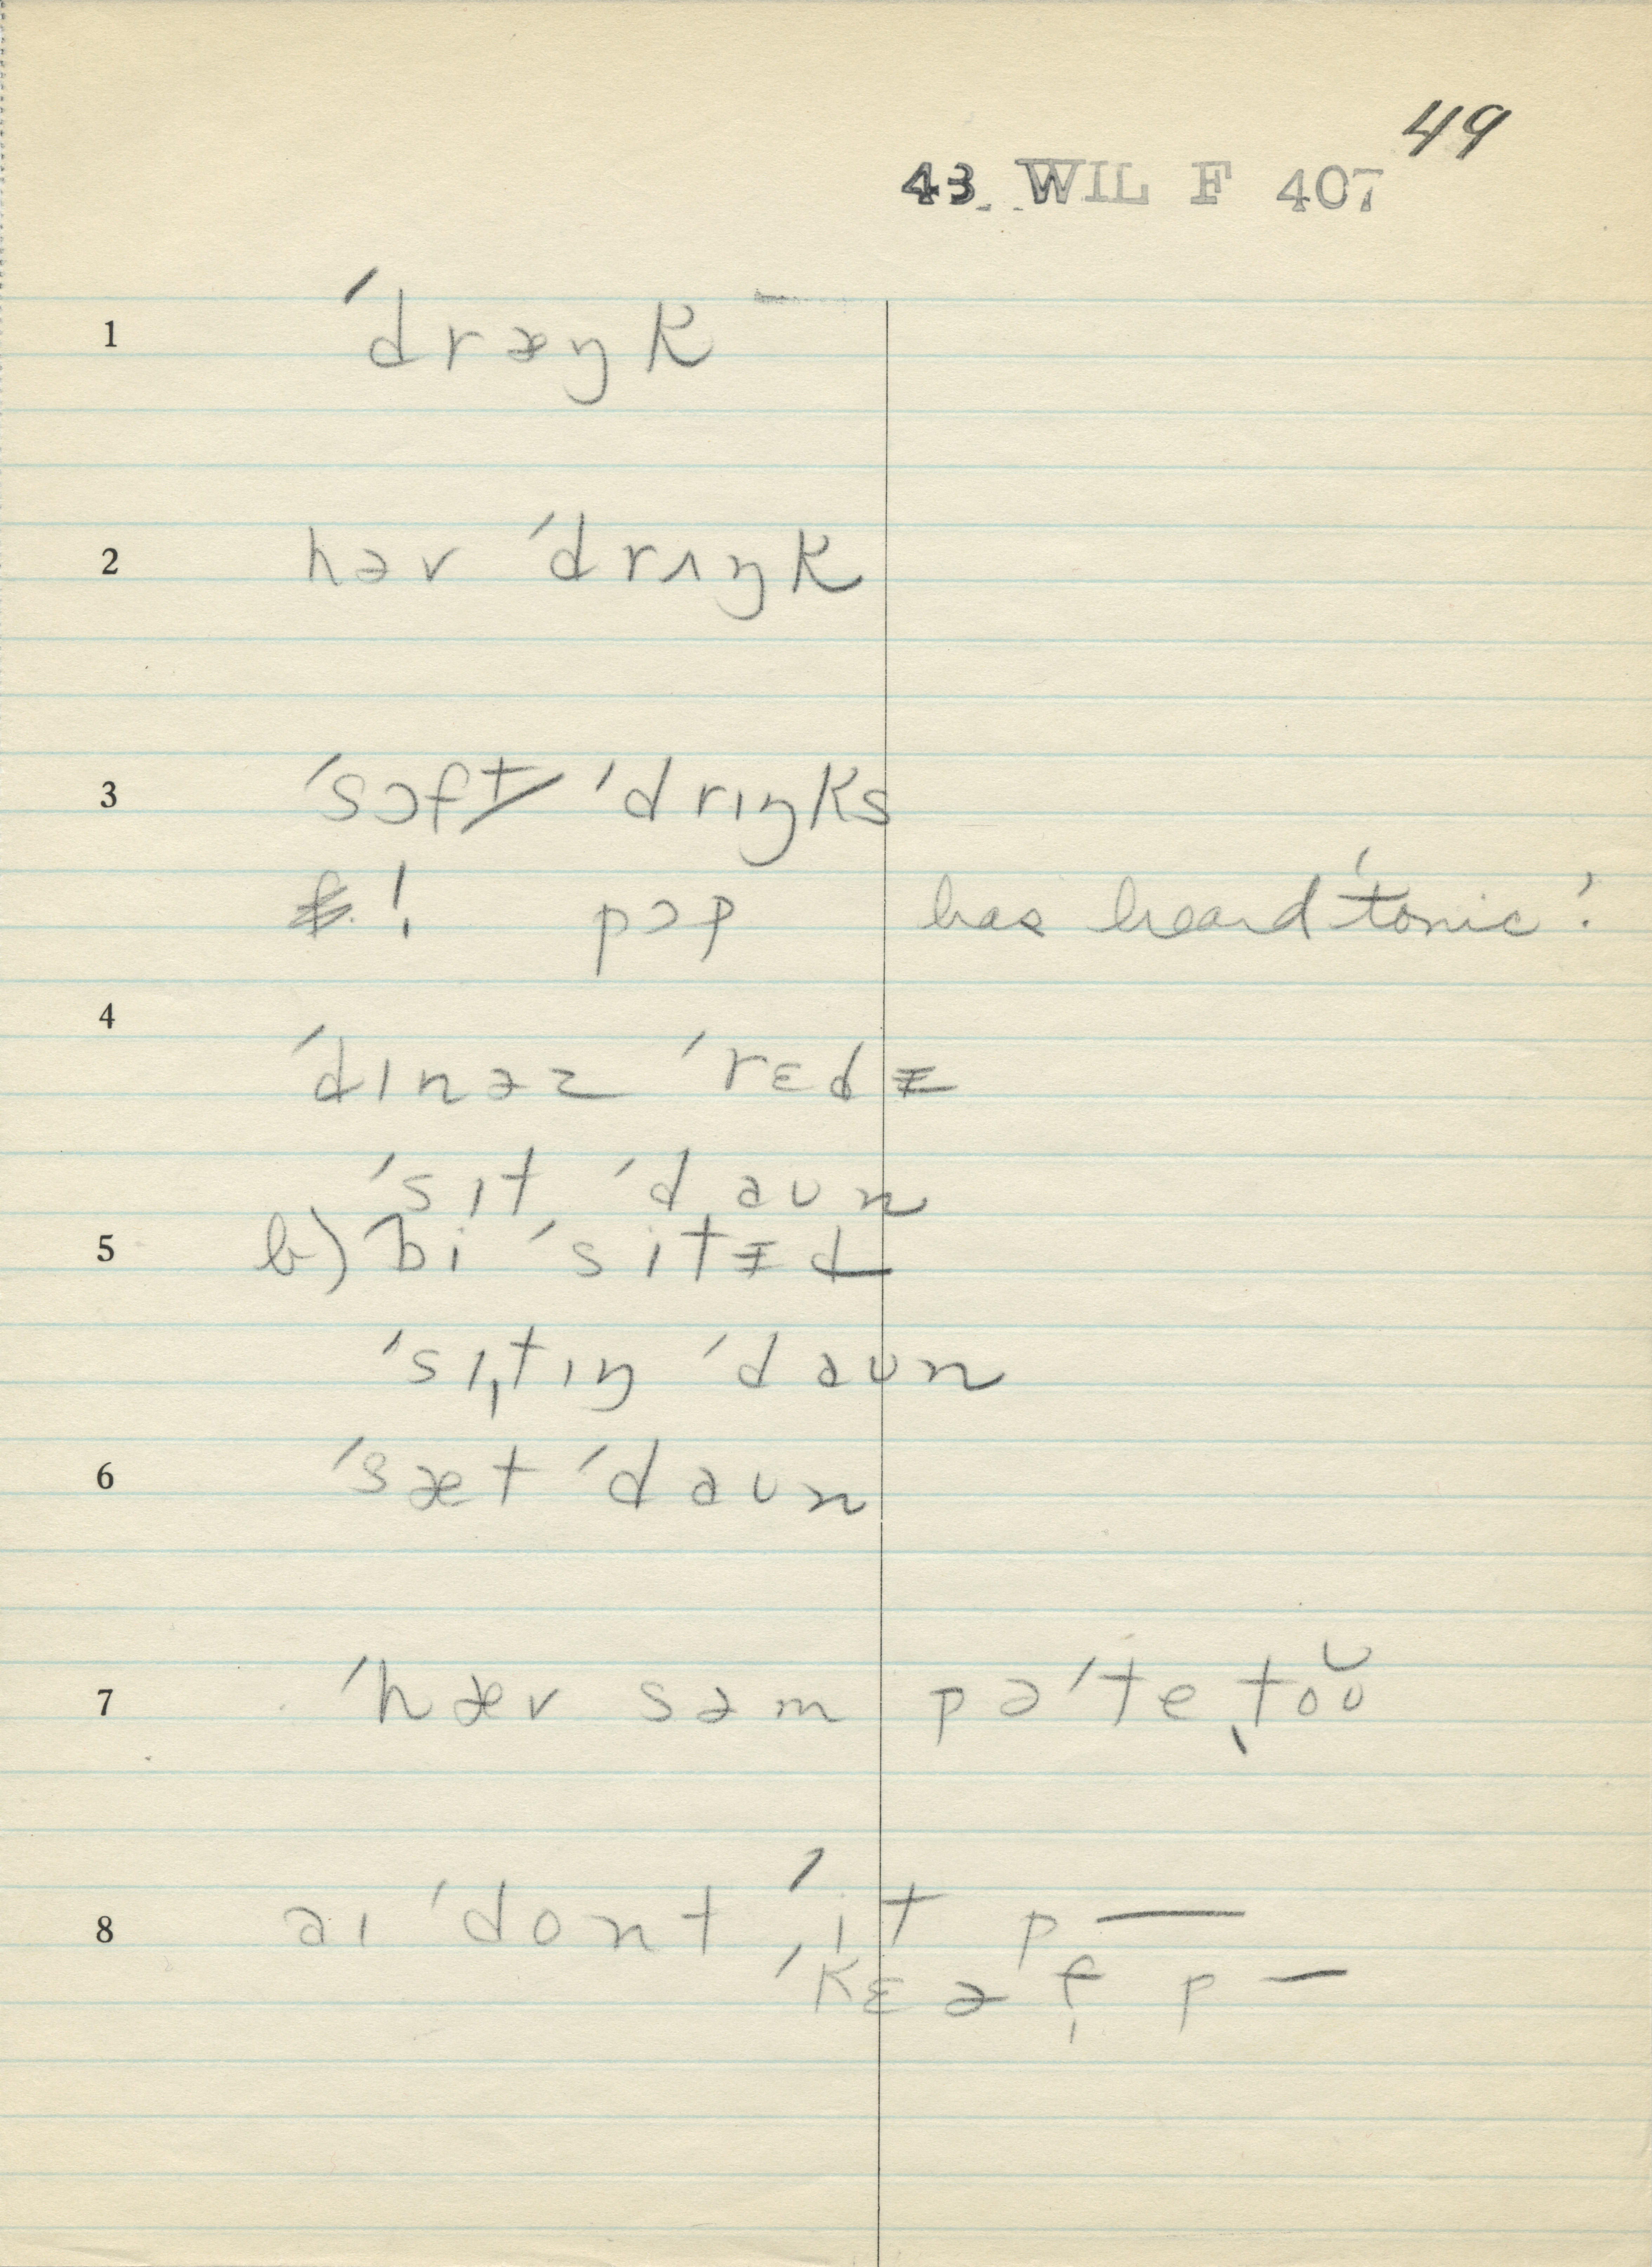 49
43 WIL F 407
1 ˈdræŋk
2 həv ˈdrʌŋk
3 ˈsɔft ˈdrɪŋks
! pɔp has heard 'tonic'.
4
ˈdɪnəz ˈrɛdɨ
ˈsɪt ˈdaʊn
5 b) bi ˈsitɨd
ˈsɪˌtɪŋ ˈdaʊn
6 ˈsæt ˈdaʊn
7 ˈhæv səm pəˈteˌtoʊ
8 aɪ ˈdont ˈit p—
ˈkɛə f p —